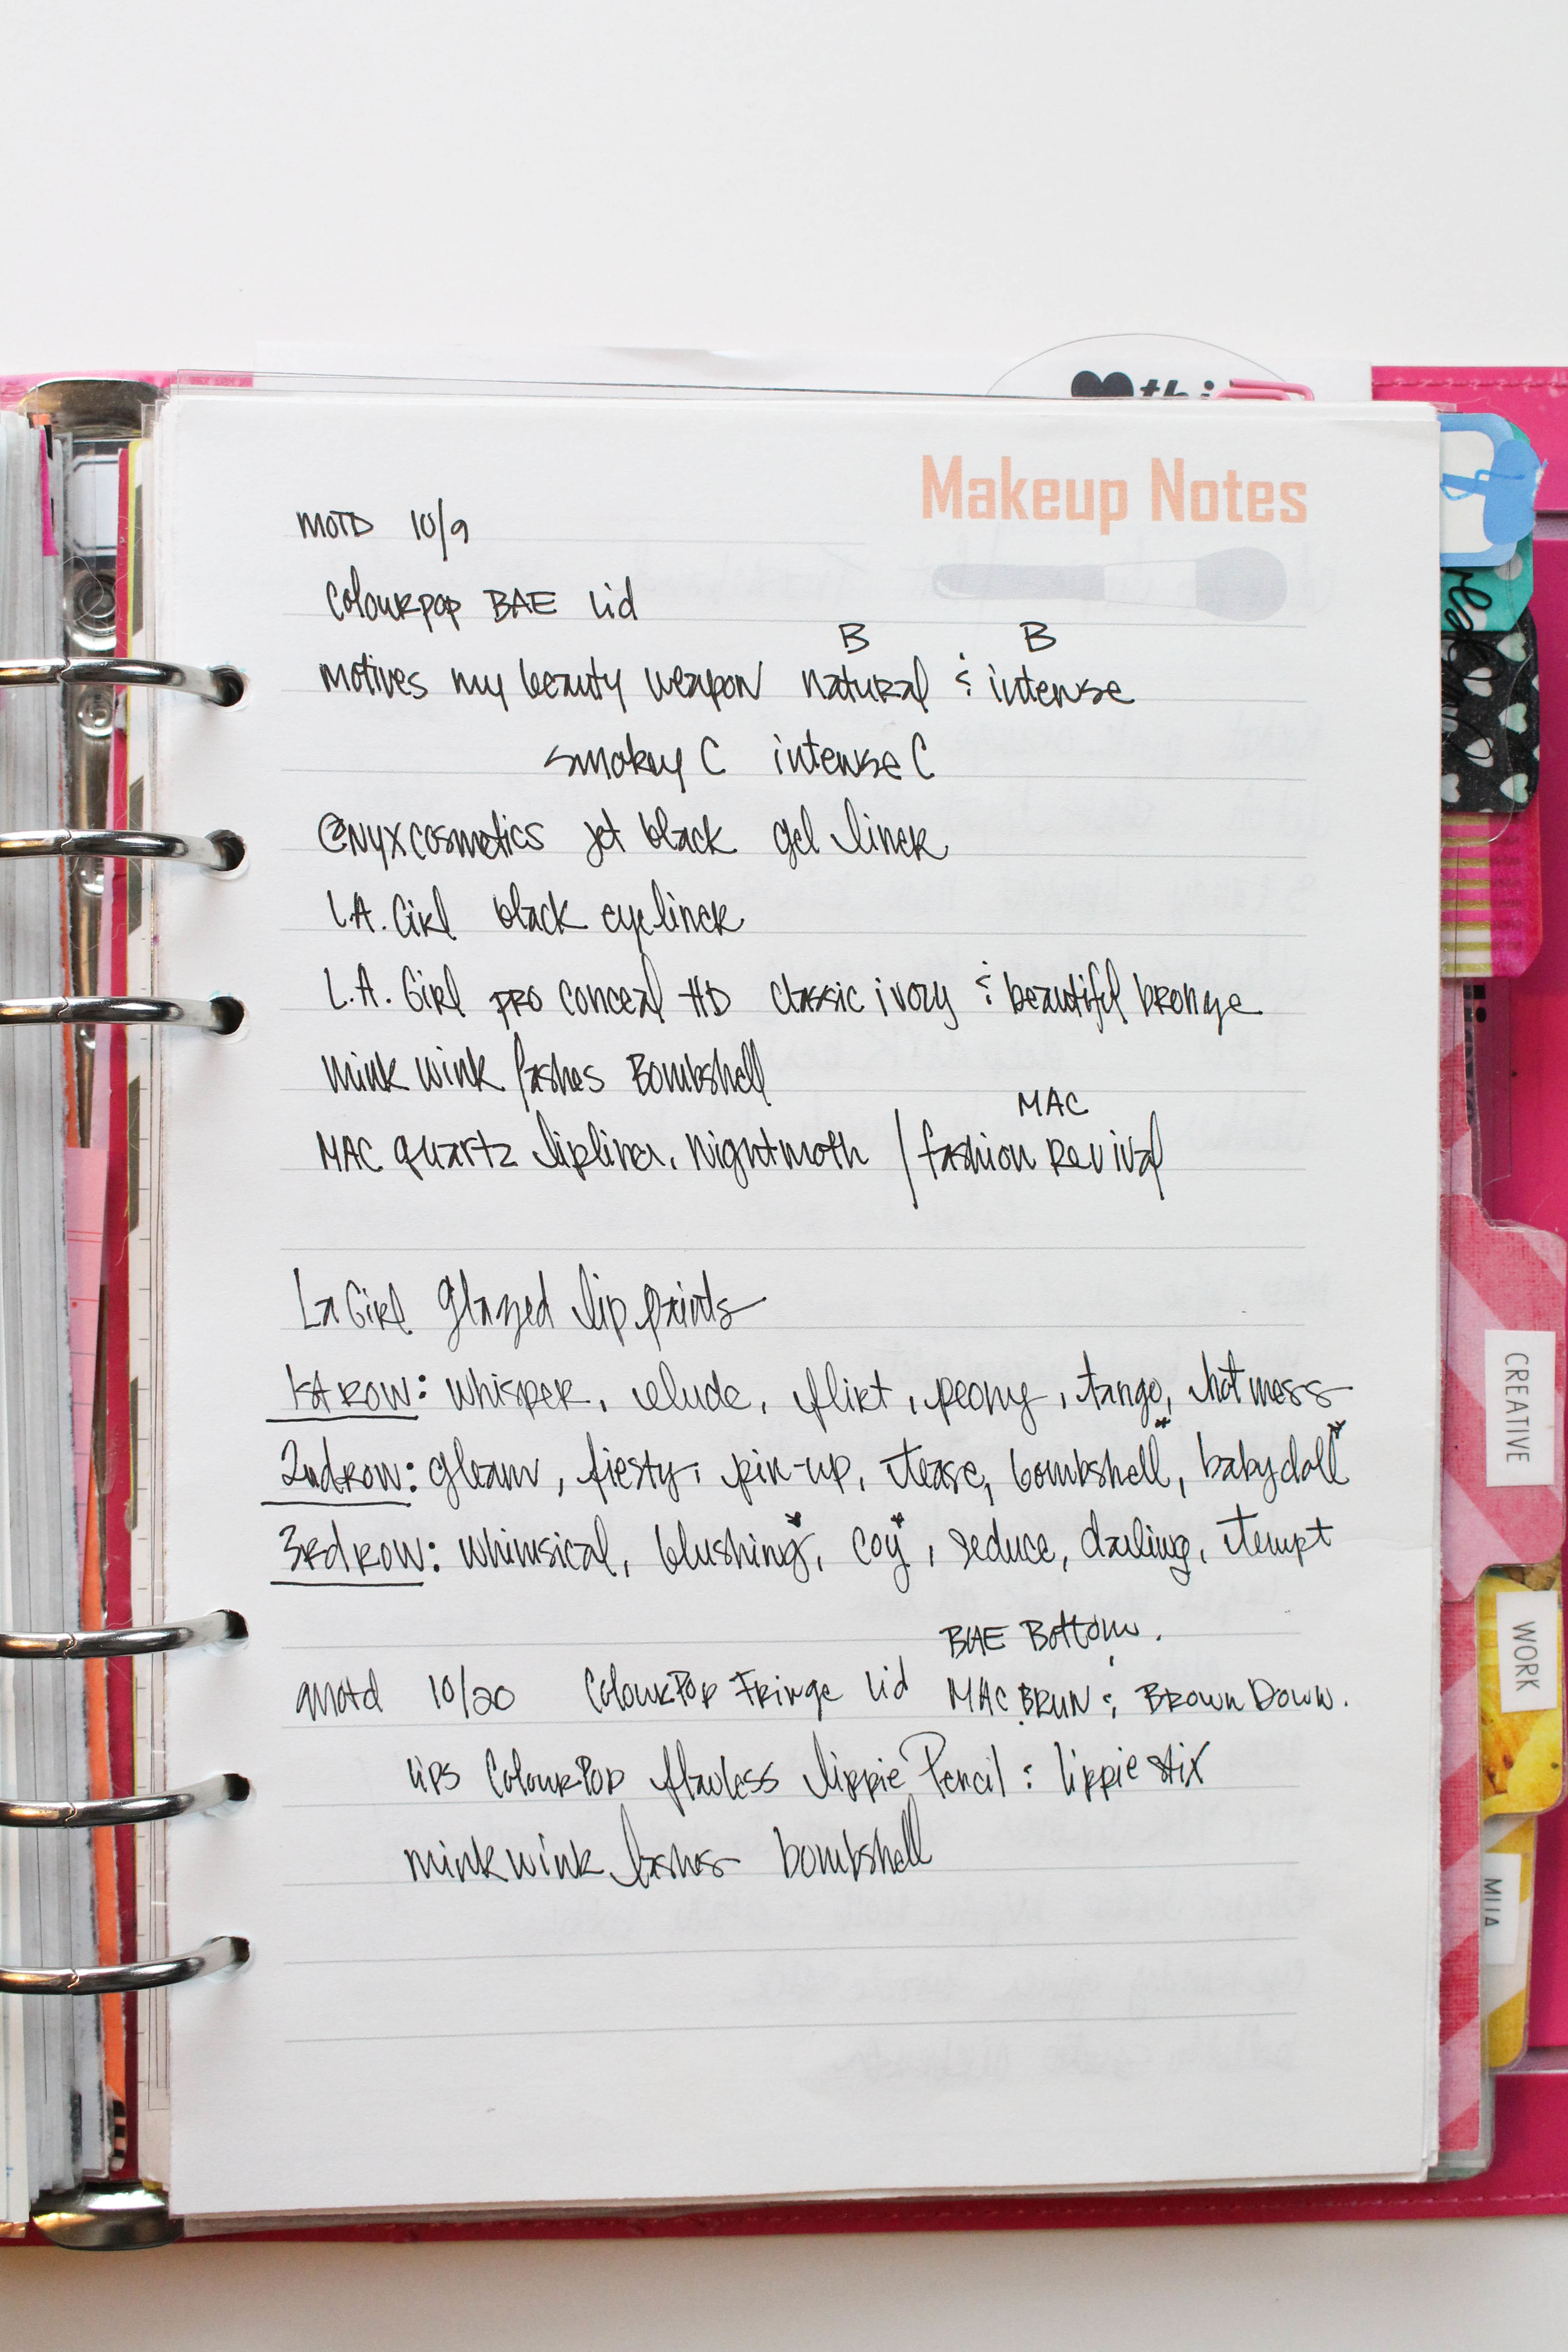 ♥thi
Makeup Notes
MOTD 10/9
Colourpop BAE lid
B B
motives my beauty weapon natural & intense
smokey C intense C
@NYXcosmetics jet black gel liner
L.A. Girl black eyeliner
L.A. Girl pro conceal HD classic ivory & beautiful bronze
mink wink lashes Bombshell
MAC
MAC quartz lipliner, Nightmoth / fashion Revival
LA Girl Glazed lip paints
1st row: whisper, elude, flirt, peony, tango, hot mess
2nd row: gleam, fiesty, pin-up, tease, bombshell*, babydoll*
3rd row: whimsical, blushing*, coy*, seduce, darling, tempt
BAE Bottom.
motd 10/20 ColourPop Fringe lid MAC BRUN & Brown Down.
lips ColourPop flawless lippie Pencil & lippie stix
mink wink lashes bombshell
CREATIVE
WORK